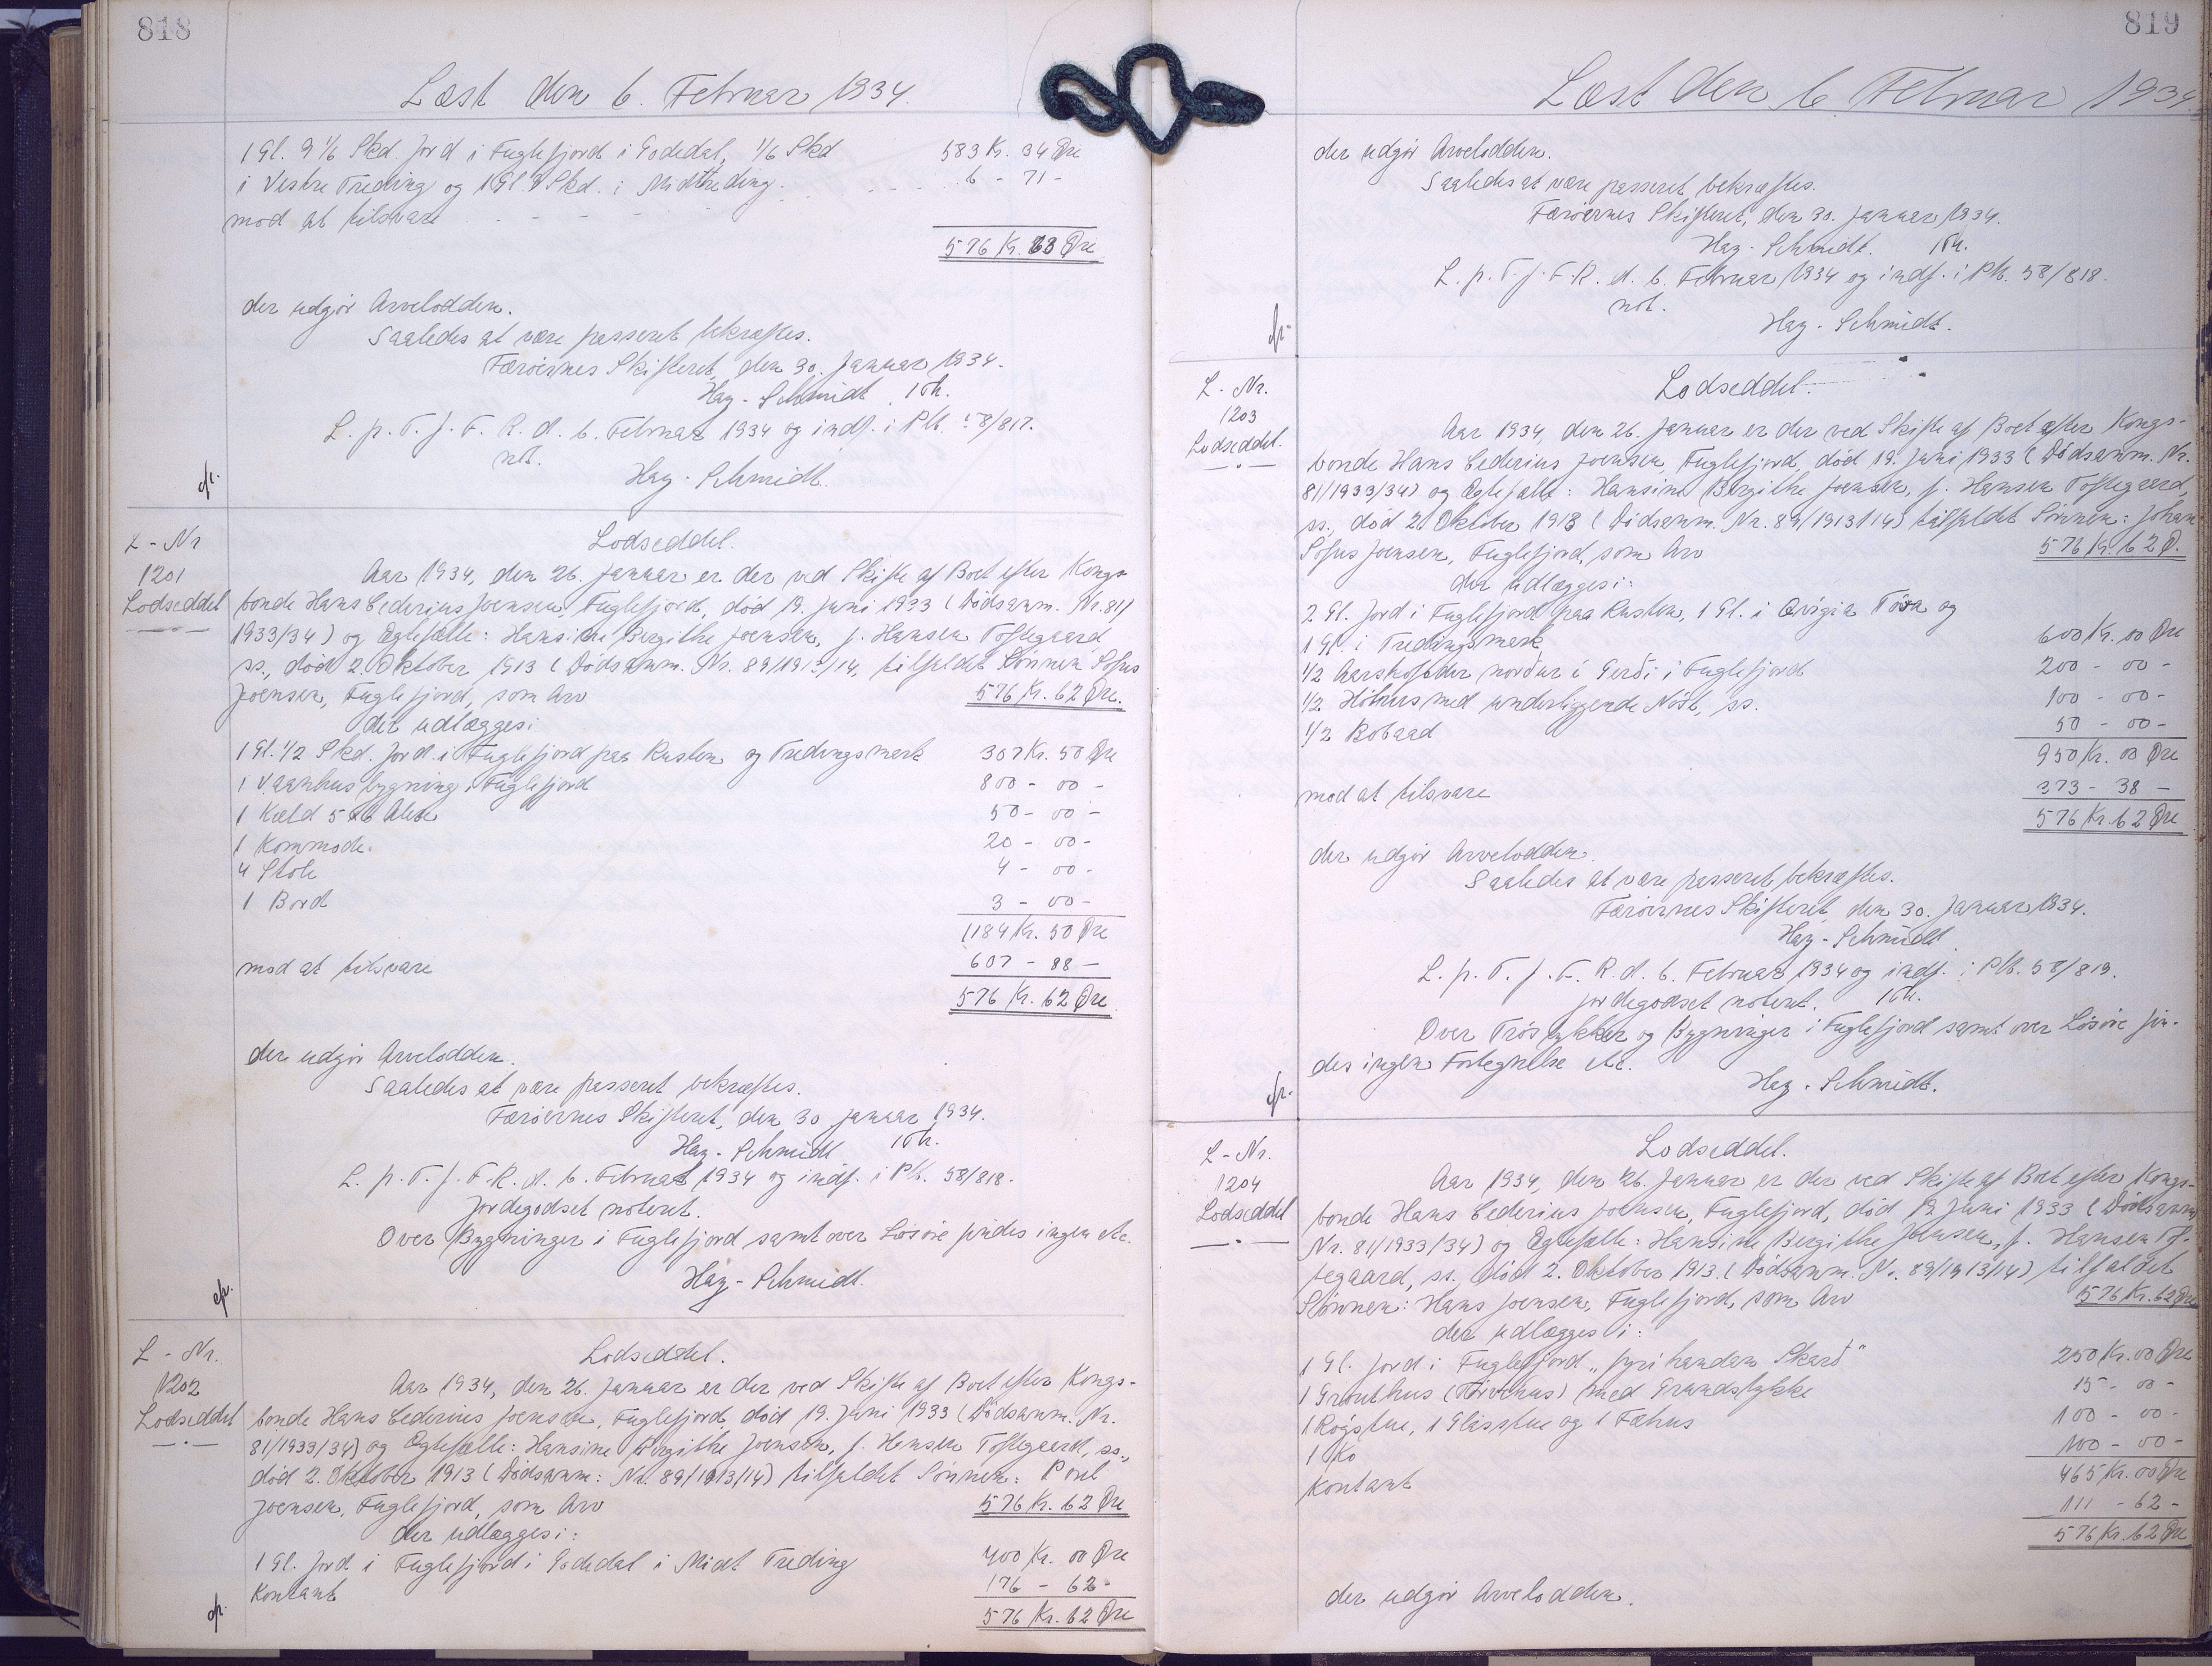 818
Læst den 6. Februar 1934.
1 Gl. 9 1/6 Skd. Jord i Fuglefjord i Godedal, 1/6 Skd 583 Kr. 34 Øre
i Vestre Treding og 1 Gl. 9 Skd. i Midttreding.
mod at tilsvare 6 - 71 -
576 Kr. 63 Øre
der udgör Arvelodden.
Saaledes at være passeret bekræftes.
Færöernes Skifteret, den 30. Januar 1934.
Hag. Schmidt /Th.
L. p. T. f. F. R. d. 6. Februar 1934 og indf. i Plb. 58/817.
not.
Hag. Schmidt.
cfr.
L-Nr
1201
Lodseddel
Lodseddel.
Aar 1934, den 26. Januar er der ved Skifte af Boet efter Kongs-
bonde Hans Cederius Joensen, Fuglefjord, död 19. Juni 1933 (Dödsanm. Nr. 81/
1933/34) og Ægtefælle: Hansine Bergithe Joensen, f. Hansen Toftegaard,
ss., död 2. Oktober 1913 (Dödsanm. Nr. 89/1913/14, tilfaldet Sönnen Sofus
Joensen, Fuglefjord, som Arv 576 Kr. 62 Øre.
der udlægges i:
1 Gl. 1/2 Skd. Jord i Fuglefjord paa Rusten og Tredingsmark 307 Kr. 50 Øre
1 Vaanhusbygning i Fuglefjord 800 - 00 -
1 Kæld 5 x 6 Alen 50 - 00 -
1 Kommode. 20 - 00 -
4 Stole 4 - 00 -
1 Bord 3 - 00 -
1184 Kr. 50 Øre
mod at tilsvare 607 - 88 -
576 Kr. 62 Øre
der udgör Arvelodden.
Saaledes at være passeret bekræftes.
Færöernes Skifteret, den 30 Januar 1934.
Hag. Schmidt /Th.
L. p. T. f. F. R. d. 6. Februar 1934 og indf. i Plb. 58/818.
Jordegodset noteret.
Over Bygninger i Fuglefjord samt over Lösöre findes ingen etc.
Hag. Schmidt.
cfr.
L-Nr.
1202
Lodseddel
Lodseddel.
Aar 1934, den 26. Januar er der ved Skifte af Boet efter Kongs-
bonde Hans Cederius Joensen, Fuglefjord, död 19. Juni 1933 (Dödsanm. Nr.
81/1933/34) og Ægtefælle: Hansine Bergithe Joensen, f. Hansen Toftegaard, ss.,
död 2. Oktober 1913 (Dödsanm: Nr. 89/1913/14) tilfaldet Sönnen: Poul
Joensen, Fuglefjord, som Arv 576 Kr. 62 Øre
der udlægges i:
1 Gl. Jord i Fuglefjord i Godedal i Midt Treding 400 Kr. 00 Øre
Kontant 176 - 62 -
576 Kr. 62 Øre
cfr.
819
Læst den 6 Februar 1934
der udgör Arvelodden.
Saaledes at være passeret bekræftes.
Færöernes Skifteret, den 30. Januar 1934.
Hag. Schmidt. /Th.
L. p. T. f. F. R. d. 6. Februar 1934 og indf. i Plb. 58/818.
not.
Hag. Schmidt.
cfr.
L-Nr.
1203
Lodseddel.
Lodseddel.
Aar 1934, den 26. Januar er der ved Skifte af Boet efter Kongs-
bonde Hans Cederius Joensen, Fuglefjord, död 19. Juni 1933 (Dödsanm. Nr.
81/1933/34) og Ægtefælle: Hansine Bergithe Joensen, f. Hansen Toftegaard,
ss., död 2 Oktober 1913 (Dödsanm. Nr. 89/1913/14) tilfaldet Sönnen: Johan
Sofus Joensen, Fuglefjord, som Arv 576 Kr. 62 Ø.
der udlægges i:
2 Gl. Jord i Fuglefjord paa Rusten, 1 Gl. i Qvigia Tösa og
1 Gl. i Tredingsmark 600 Kr. 00 Øre
1/2 Aarskofoder norður i Gerði i Fuglefjord 200 - 00 -
1/2 Höhus med underliggende Nöst, ss. 100 - 00 -
1/2 Bobaad 50 - 00 -
950 Kr. 00 Øre
mod at tilsvare 373 - 38 -
576 Kr. 62 Øre
der udgör Arvelodden.
Saaledes at være passeret bekræftes.
Færöernes Skifteret, den 30. Januar 1934.
Hag. Schmidt
L. p. T. f. F. R. d. 6. Februar 1934 og indf. i Plb. 58/819.
Jordegodset noteret. /Th.
Over Tröstykker og Bygninger i Fuglefjord samt over Lösöre fin-
des ingen Fortegnelse etc.
Hag. Schmidt.
cfr.
L-Nr.
1204
Lodseddel
Lodseddel.
Aar 1934, den 26. Januar er der ved Skifte af Boet efter Kongs-
bonde Hans Cederius Joensen, Fuglefjord, död 19 Juni 1933 (Dödsanm
Nr. 81/1933/34) og Ægtefælle: Hansine Bergithe Joensen, f. Hansen Tof-
tegaard, ss., död 2. Oktober 1913. (Dödsanm. Nr. 89/1913/14) tilfaldet
Sönnen: Hans Joensen, Fuglefjord, som Arv 576 Kr. 62 Øre
der udlægges i:
1 Gl. Jord i Fuglefjord „fyri handan Skarð“ 250 Kr. 00 Øre
1 Grouthus (Törvehus) med Grundstykke 15 - 00 -
1 Rögstue, 1 Glasstue og 1 Fæhus 100 - 00 -
1 Ko 100 - 00 -
465 Kr. 00 Øre
Kontant 111 - 62 -
576 Kr. 62 Øre
der udgör Arvelodden.